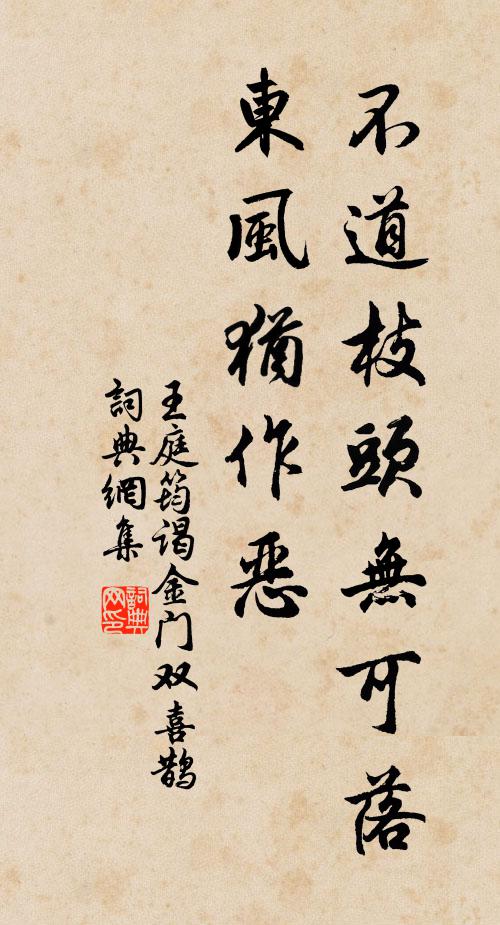 不道枝頭無可落
東風猶作惡
王庭筠谒金门双喜鹊
詞典網集
詞典網印